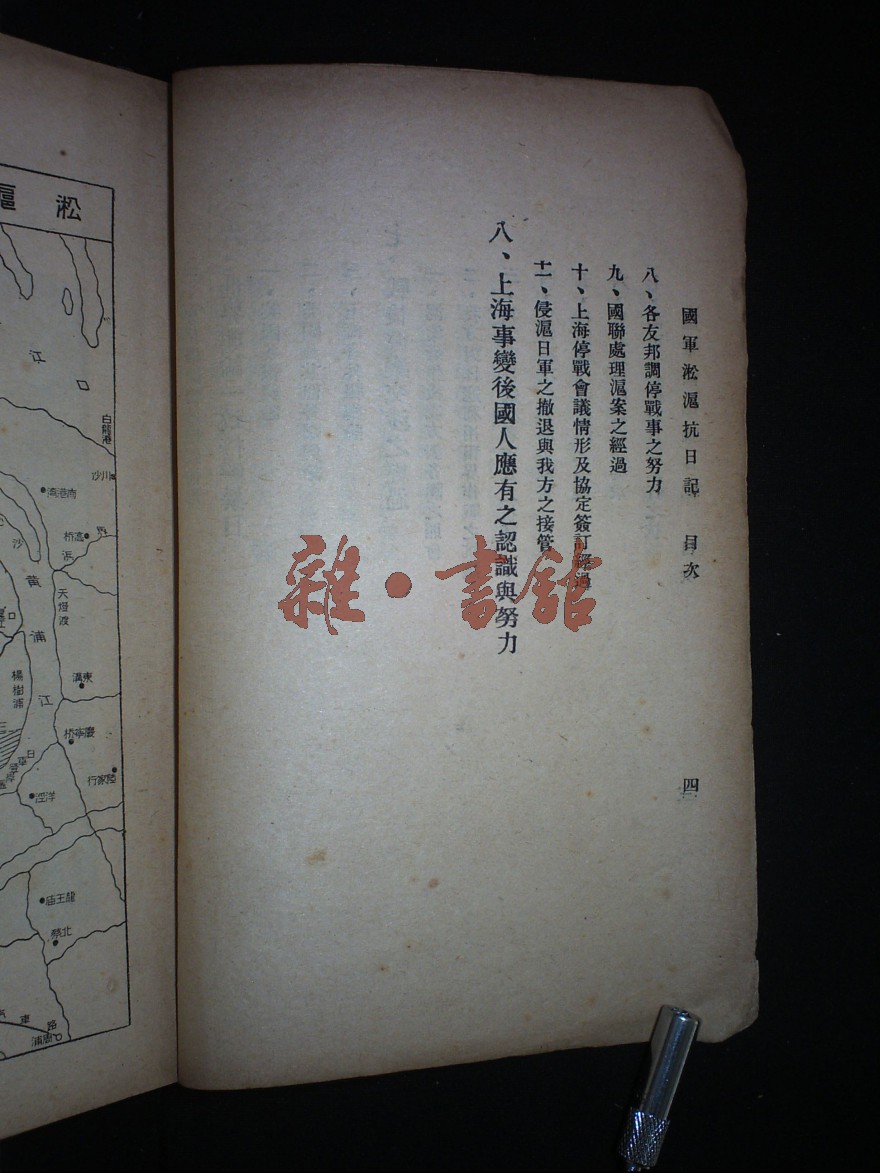 國軍淞滬抗日記 目次
四
八、各友邦調停戰事之努力
九、國聯處理滬案之經過
十、上海停戰會議情形及協定簽訂經過
十一、侵滬日軍之撤退與我方之接管
八、上海事變後國人應有之認識與努力
雜·書館
淞滬
江
白龍港
川沙
南港湾
高橋
界浜
沙
黄浦江
天燈渡
楊樹浦
東溝
慶寧桥
陸家行
洋涇
龍王庙
北蔡
周浦